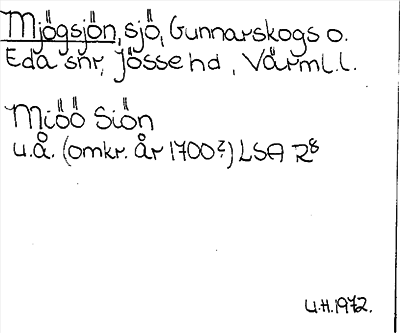 Mjögsjön, sjö, Gunnarskogs o.
Eda snr, Jösse hd, Värml. l.
Miöö Siön
u.å. (omkr. år 1700?) LSA R8
U.H. 1972.